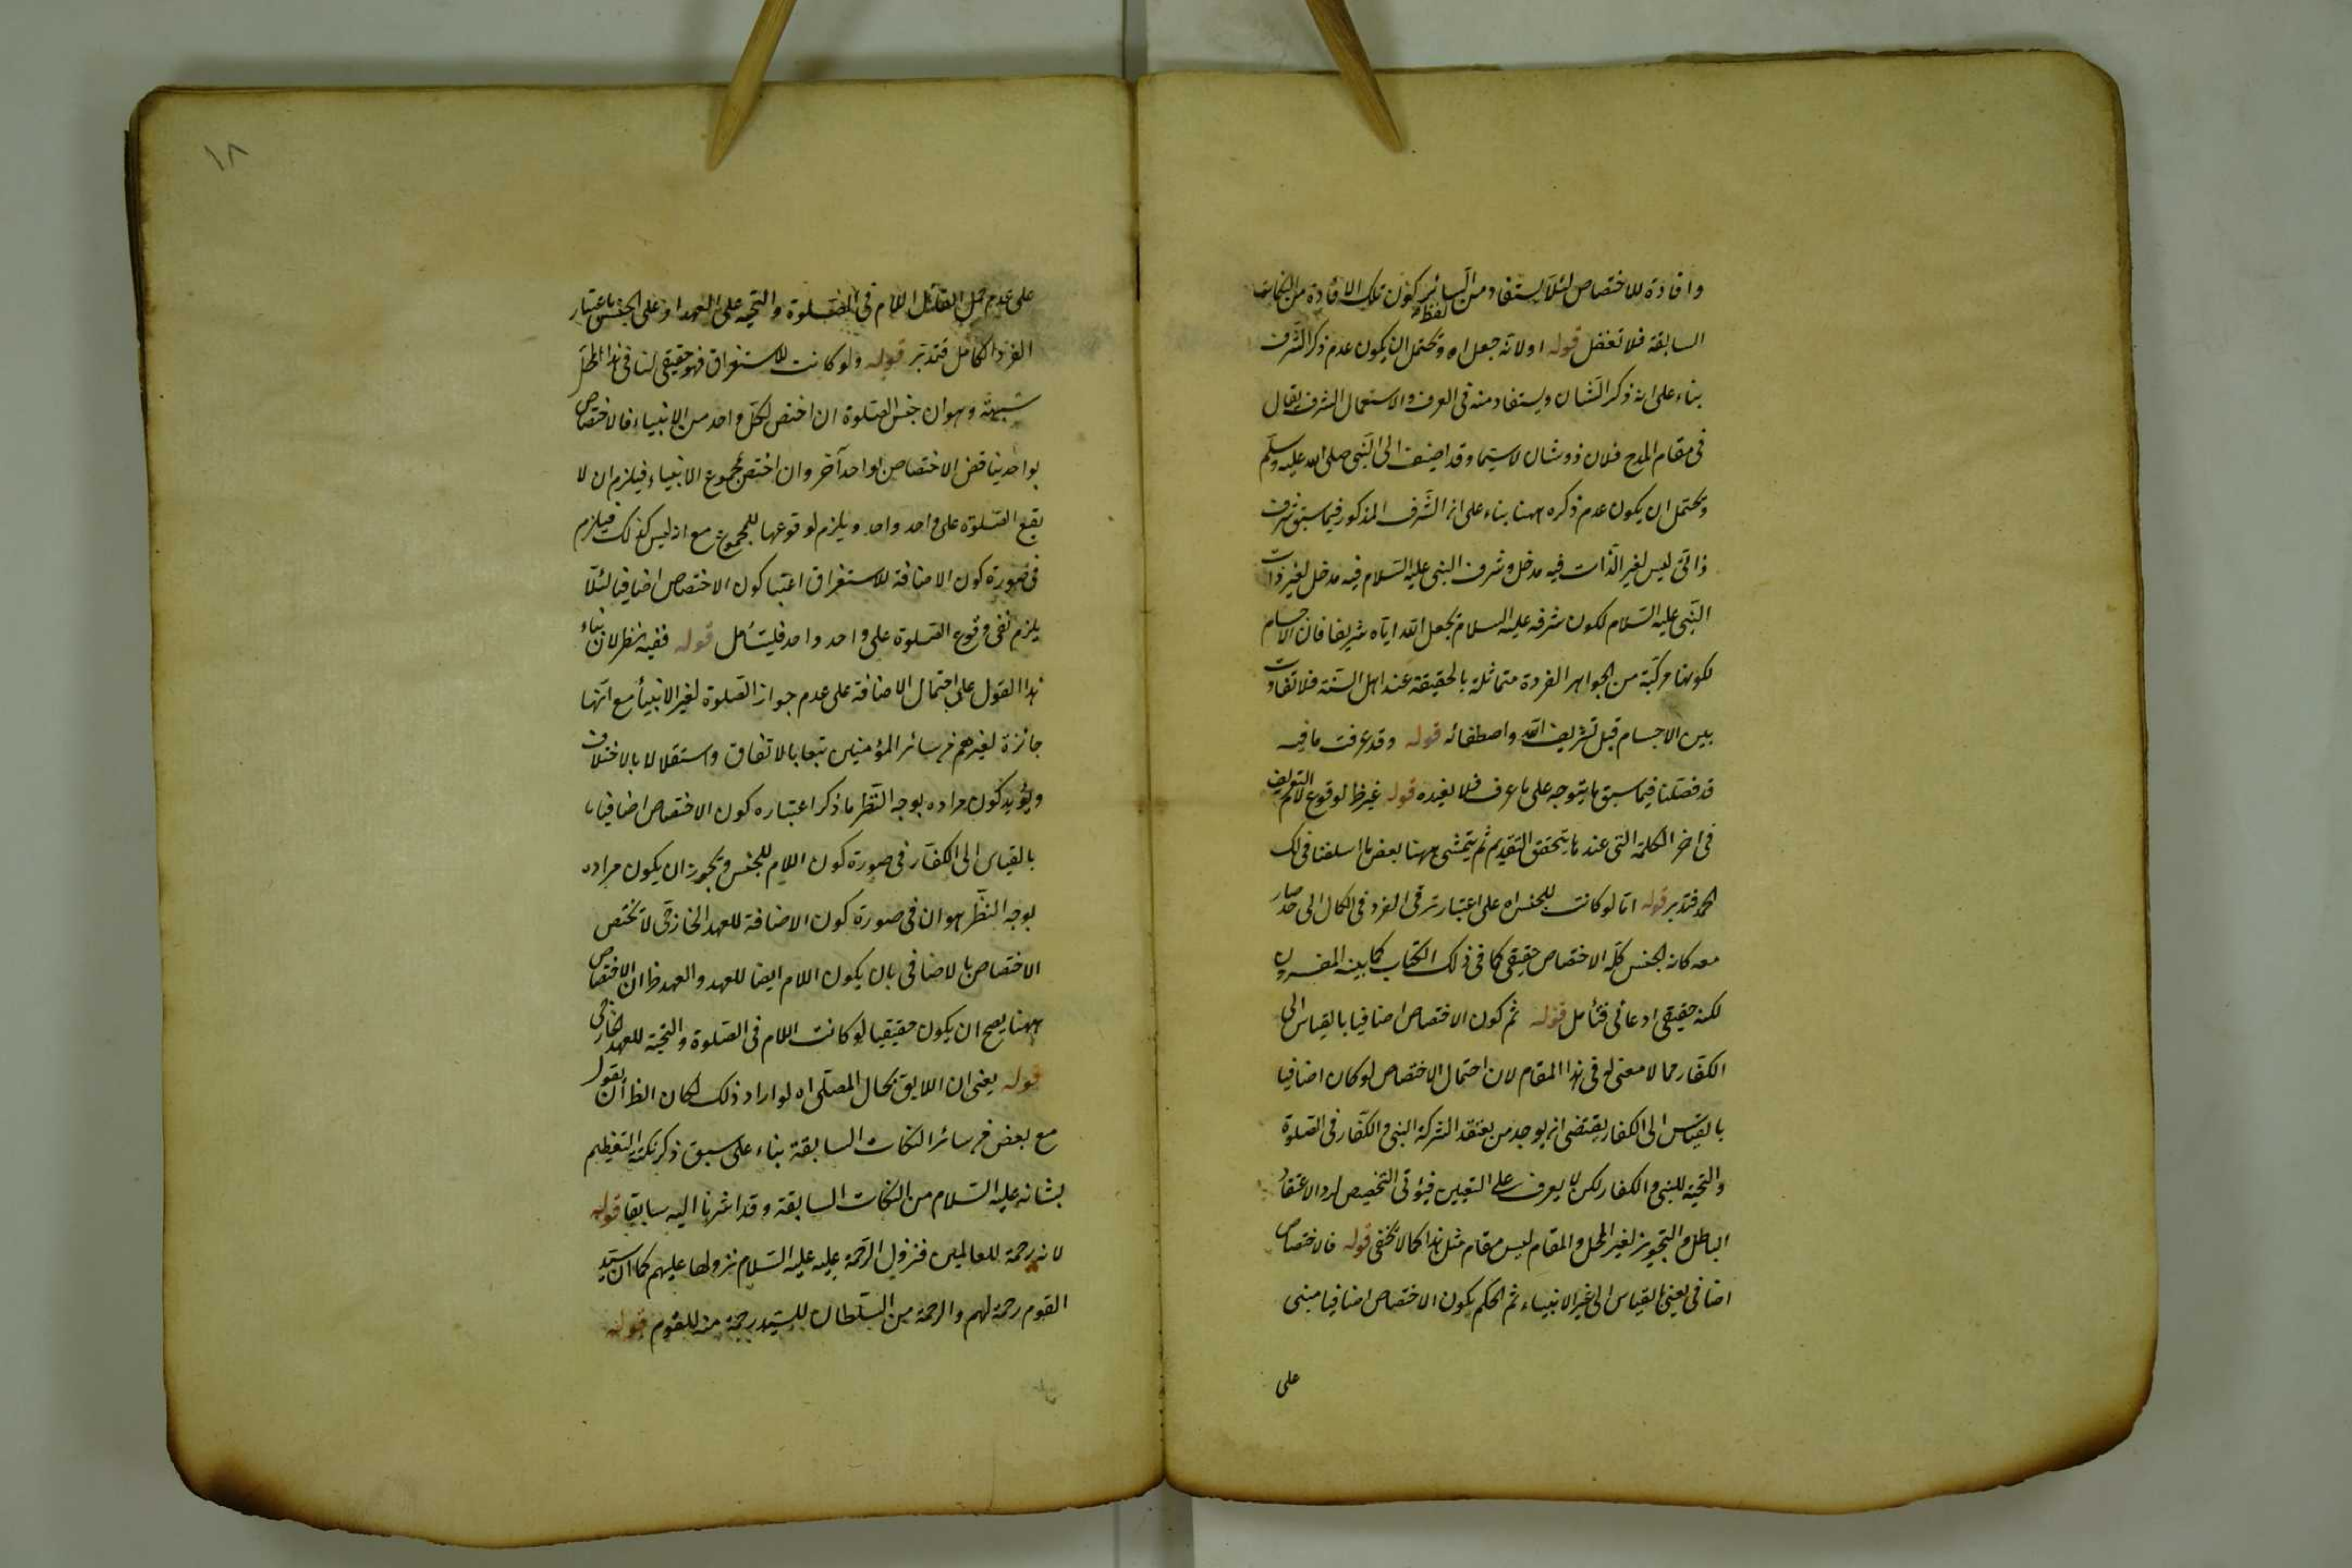 وافادة للاختصاص لئلا يستفاد من السائر لفظ كون تلك الافادة من النكات
السابقة فلا تغفل قوله اولانه جعل اه ويحتمل ان يكون عدم ذكر الشرف
بناء على انه ذكر الشان ويستفاد منه فى العرف والاستعمال الشرف يقال
فى مقام المدح فلان ذو شان لا سيما وقد اضيف الى النبى صلى الله عليه وسلم
ويحتمل ان يكون عدم ذكره ههنا بناء على ان الشرف المذكور فيما سبق شرف
ذاتى ليس لغير الذات فيه مدخل وشرف النبى عليه السلام فيه مدخل لغير ذات
النبى عليه السلام لكون شرفه عليه السلام بجعل الله اياه شريفا فان الاجسام
لكونها مركبة من الجواهر الفردة متماثلة بالحقيقة عند اهل السنة فلا تفاوت
بين الاجسام قبل تشريف الله واصطفائه قوله وقد عرفت ما فيه
قد فصلنا فيما سبق ما يتوجه على ما عرف فلا نعيده قوله غير ظ لوقوع لام التعريف
فى اخر الكلمة التى عندها يتحقق التقديم ثم يتمشى ههنا بعض ما اسلفنا فى لك
الحمد فتدبر قوله اما لو كانت للجنس اه على اعتبار ترقى الفرد فى الكمال الى حد صار
معه كانه الجنس كله الاختصاص حقيقى كما فى ذلك الكتاب كما بينه المفسرون
لكنه حقيقى ادعائى فتأمل قوله ثم كون الاختصاص اضافيا بالقياس الى
الكفار مما لا معنى له فى هذا المقام لان احتمال الاختصاص لو كان اضافيا
بالقياس الى الكفار يقتضى انه يوجد من يعتقد الشركة النبى والكفار فى الصلوة
والتحية للنبى والكفار لكن لا يعرف على التعيين فيؤتى التخصيص لرد الاعتقاد
الباطل والتجويز لغير المحل والمقام ليس مقام مثل هذا كما لا يخفى قوله فالاختصاص
اضافى يعنى بالقياس الى غير الانبياء ثم الحكم بكون الاختصاص اضافيا مبنى
على
١٨
على عدم حمل القائل اللام فى الصلوة والتحية على العهد او على الجنس باعتبار
الفرد الكامل فتدبر قوله ولو كانت للاستغراق فهو حقيقى لنا فى هذا المحل
شبهة وهو ان جنس الصلوة ان اختص لكل واحد من الانبياء فالاختصاص
بواحد يناقض الاختصاص لواحد آخر وان اختص بمجموع الانبياء فيلزم ان لا
يقع الصلوة على واحد واحد ويلزم لوقوعها للمجموع مع انه ليس كذلك فيلزم
فى صورة كون الاضافة للاستغراق اعتبا كون الاختصاص اضافيا لئلا
يلزم نفى وقوع الصلوة على واحد واحد فليتأمل قوله ففيه نظر لان بناء
هذا القول على احتمال الاضافة على عدم جواز الصلوة لغير الانبياء مع انها
جائزة لغيرهم من سائر المؤمنين تبعا بالاتفاق واستقلالا بالاختلاف
ويؤيد كون مراده بوجه النظر ما ذكر اعتباره كون الاختصاص اضافيا
بالقياس الى الكفار فى صورة كون اللام للجنس ويجوز ان يكون مراده
بوجه النظر هو ان فى صورة كون الاضافة للعهد الخارجى لا يختص
الاختصاص بالاضافى بان يكون اللام ايضا للعهد والعهد ظ ان الاختصاص
ههنا يصح ان يكون حقيقيا لو كانت اللام فى الصلوة والتحية للعهد الخارجى
قوله يعنى ان اللايق بحال المصلى اه لو اراد ذلك لكان الظ ان يقول
مع بعض من سائر النكات السابقة بناء على سبق ذكر نكتة التعظيم
بشانه عليه السلام من النكات السابقة وقد اشرنا اليه سابقا قوله
لانه رحمة للعالمين فنزول الرحمة عليه عليه السلام نزولها عليهم كما ان سيد
القوم رحمة لهم والرحمة من السلطان للسيد رحمة منه للقوم قوله